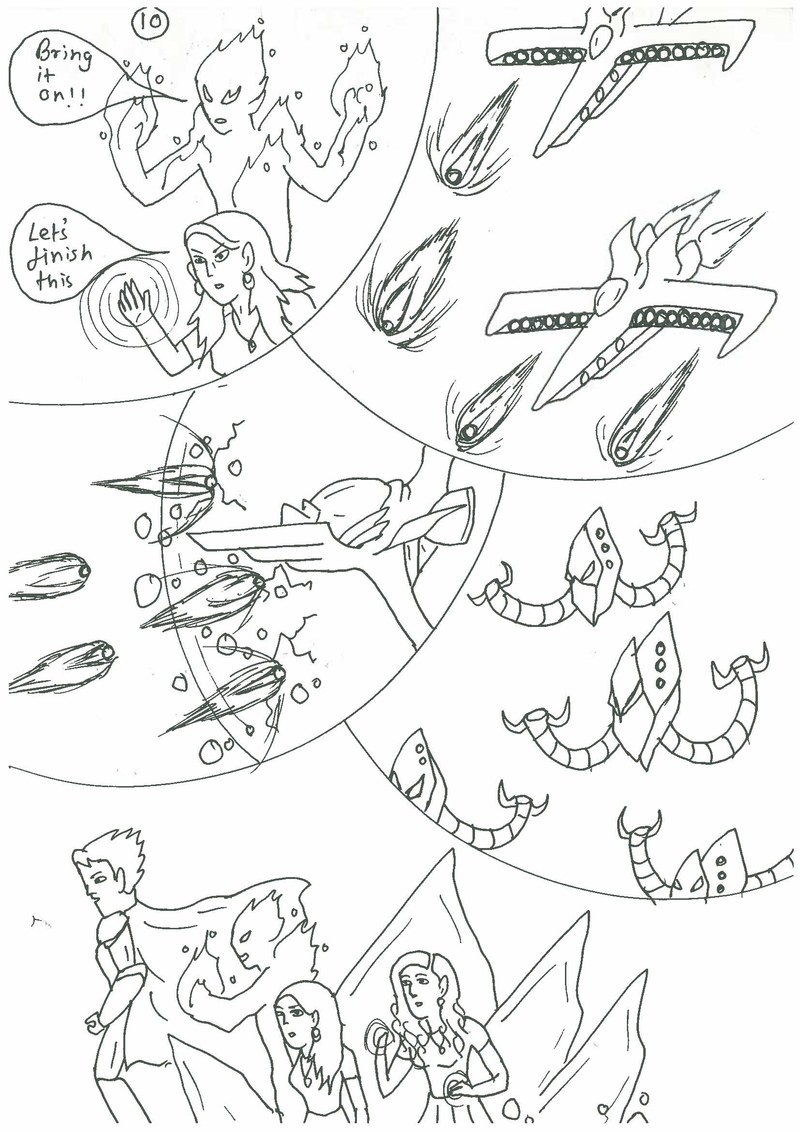 10
Bring
it
on!!
Let's
finish
this